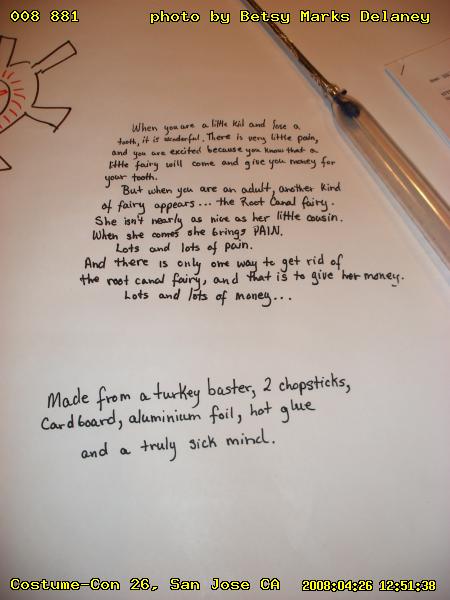 008 881 photo by Betsy Marks Delaney
When you are a little kid and lose a
tooth, it is wonderful. There is very little pain,
and you are excited because you know that a
little fairy will come and give you money for
your tooth.
But when you are an adult, another kind
of fairy appears... the Root Canal fairy.
She isn't nearly as nice as her little cousin.
When she comes she brings PAIN.
Lots and lots of pain.
And there is only one way to get rid of
the root canal fairy, and that is to give her money.
Lots and lots of money...
Made from a turkey baster, 2 chopsticks,
Cardboard, aluminium foil, hot glue
and a truly sick mind.
Costume-Con 26, San Jose CA 2008:04:26 12:51:38